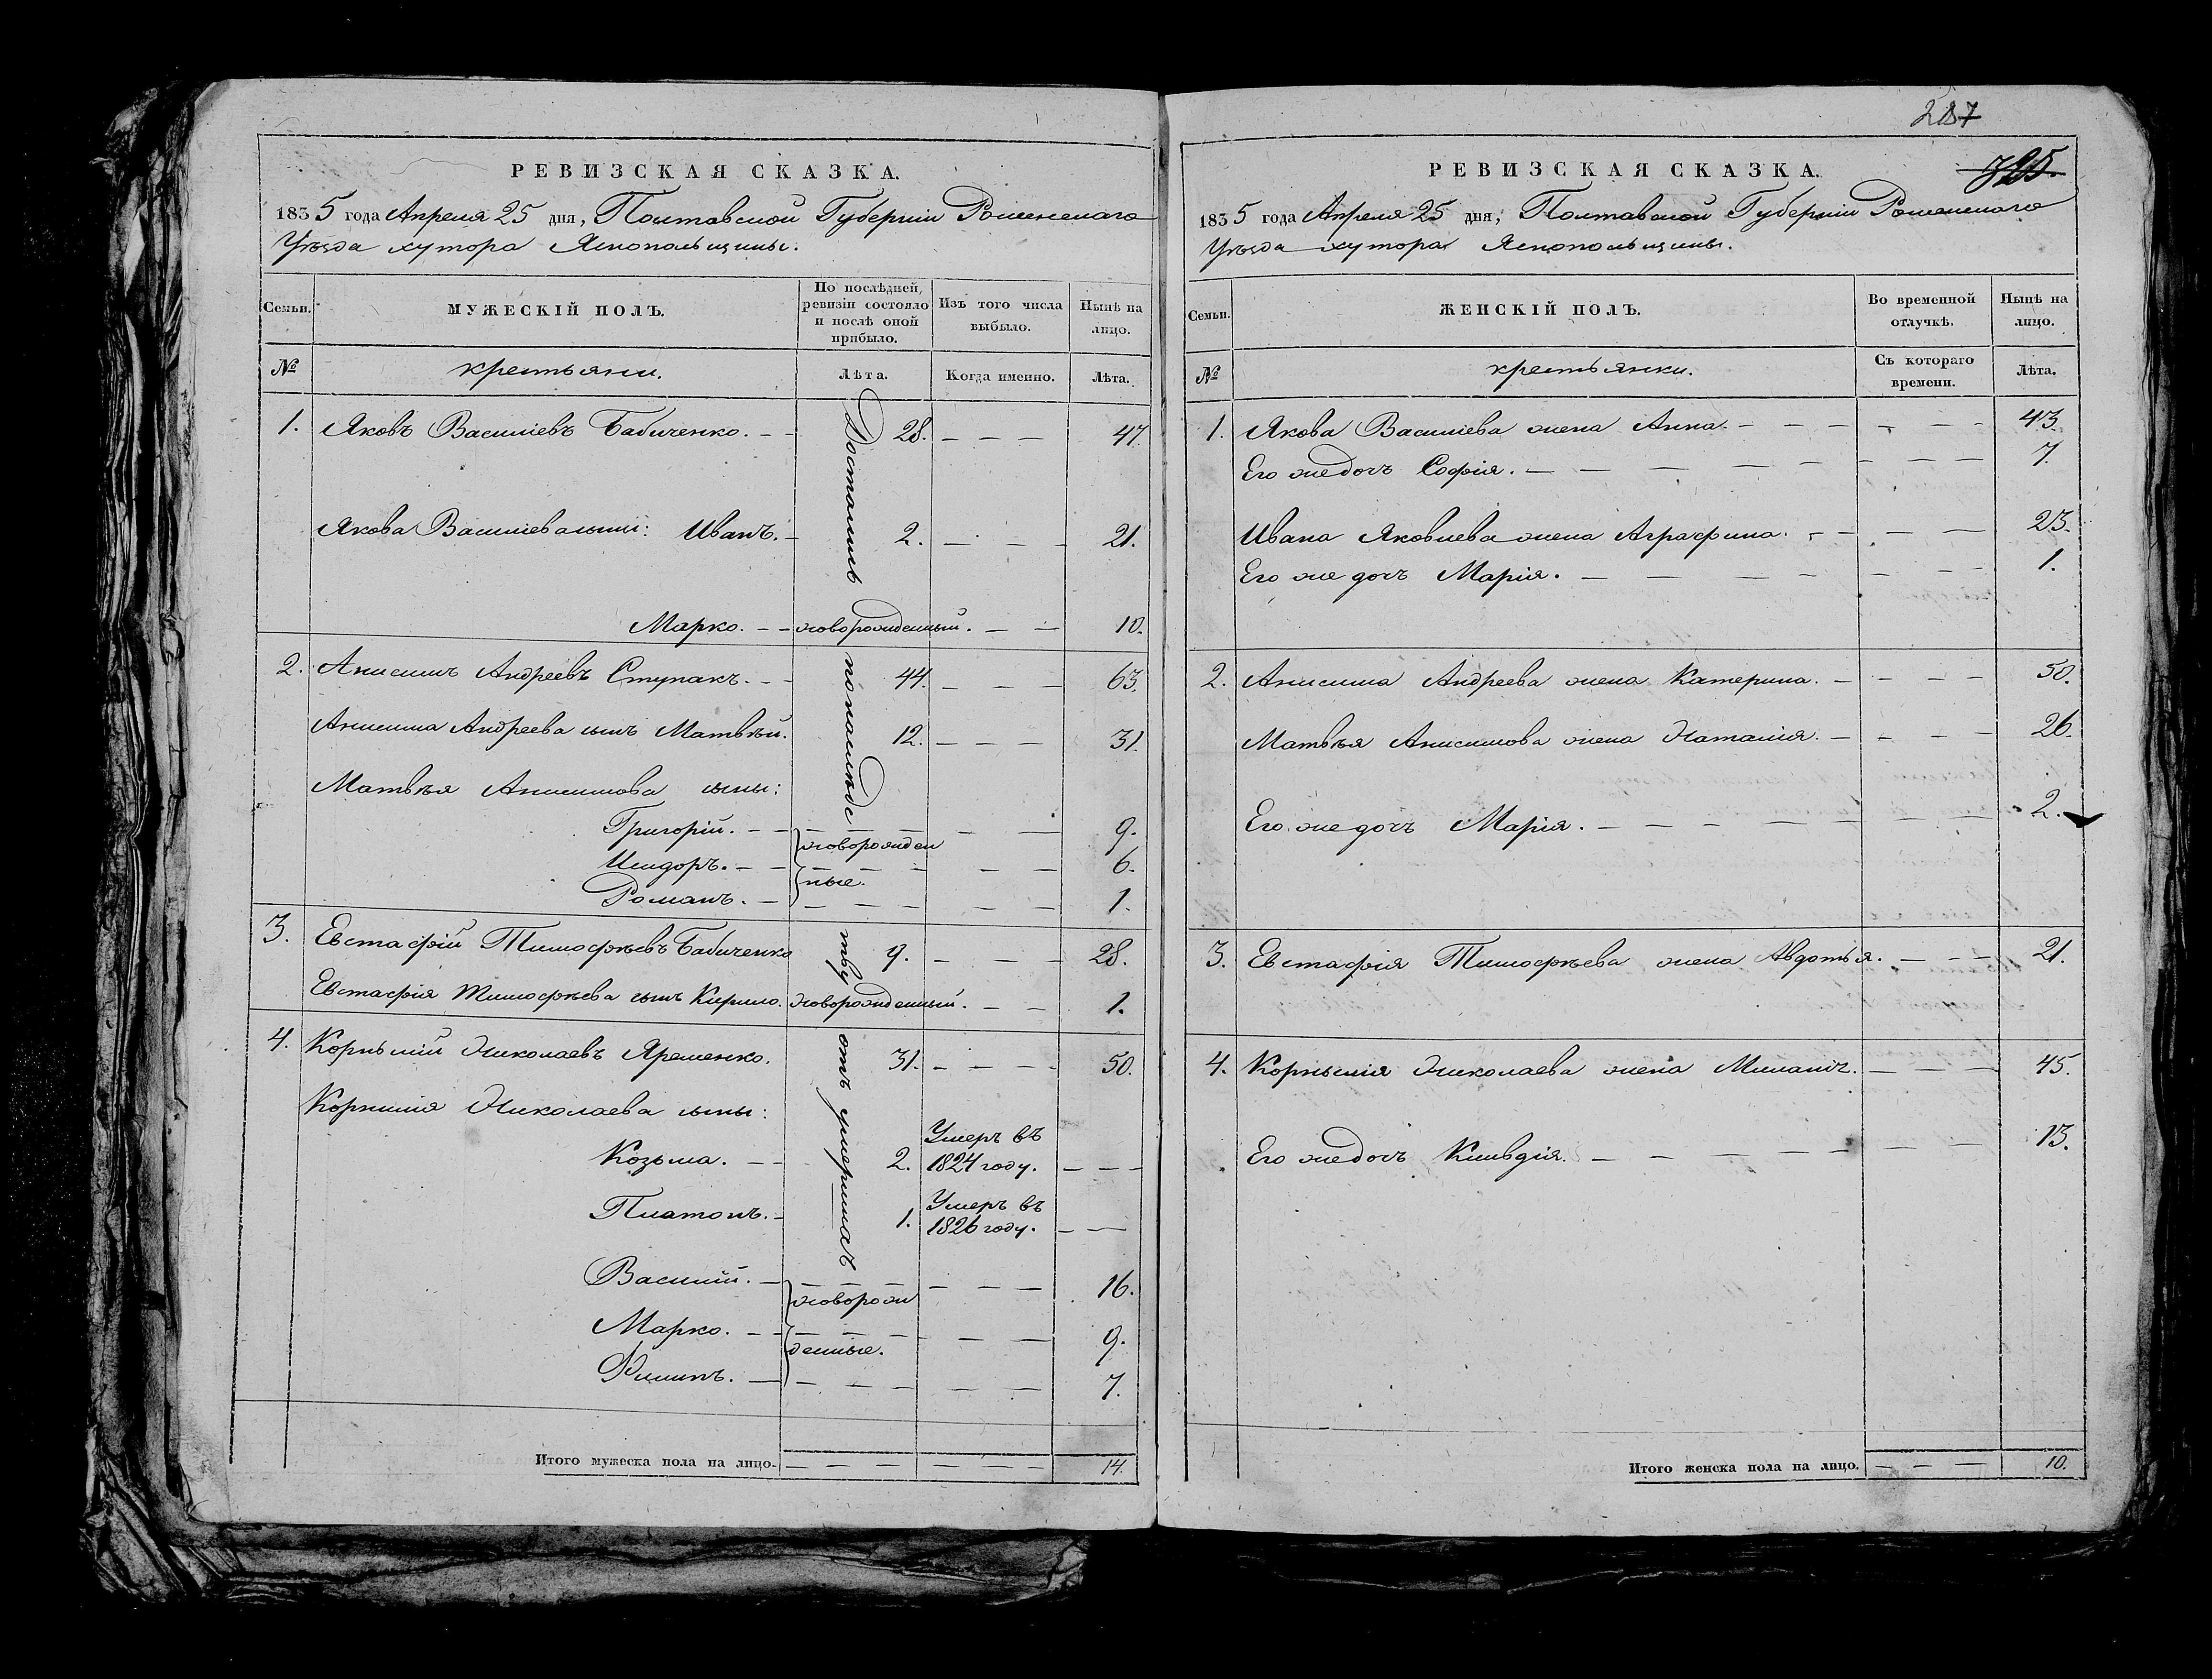 РЕВИЗСКАЯ СКАЗКА.
1835 года Апреля 25 дня, Полтавской Губерніи Роменскаго
Уѣзда хутора Яснопольщины.
Семьи.
МУЖЕСКІЙ ПОЛЪ.
По послѣдней ревизіи состояло и послѣ оной прибыло.
Изъ того числа выбыло.
Нынѣ на лицо.
№
крестьяни.
Лѣта.
Когда именно.
Лѣта.
1. Яковъ Васильевъ Бабиченко. 28. 47.
Якова Васильева сыны: Иванъ. 2. 21.
Марко. новорожденный. 10.
2. Анисимъ Андреевъ Ступакъ. 44. 63.
Анисима Андреева сынъ Матвѣй. 12. 31.
Матвѣя Анисимова сыны:
Григорій. 9.
новорожден
Исидоръ. 6.
ные.
Романъ. 1.
3. Евстафій Тимофѣевъ Бабиченко 9. 28.
Евстафія Тимофѣева сынъ Кирило. новорожденный. 1.
4. Корнѣлій Николаевъ Яременко. 31. 50.
Корнилія Николаева сыны:
Козьма. 2. Умеръ въ 1824 году.
Платонъ. 1. Умеръ въ 1826 году.
Василій. 16.
новорож
Марко. 9.
денные.
Филипъ. 7.
Достались по наслѣдству отъ умершаго
Итого мужеска пола на лицо. 14.
287
РЕВИЗСКАЯ СКАЗКА.
1835 года Апреля 25 дня, Полтавской Губерніи Роменскаго
Уѣзда хутора Яснопольщины.
Семьи.
ЖЕНСКІЙ ПОЛЪ.
Во временной отлучкѣ.
Нынѣ на лицо.
№
крестьянки.
Съ котораго времени.
Лѣта.
1. Якова Васильева жена Анна. 43.
Его же дочь Софія. 7.
Ивана Яковлева жена Аграфина. 23.
Его же дочь Марія. 1.
2. Анисима Андреева жена Катерина. 50.
Матвѣя Анисимова жена Наталія. 26.
Его же дочь Марія. 2.
3. Евстафія Тимофѣева жена Авдотья. 21.
4. Корнѣлія Николаева жена Миланія. 45.
Его же дочь 13.
Итого женска пола на лицо. 10.